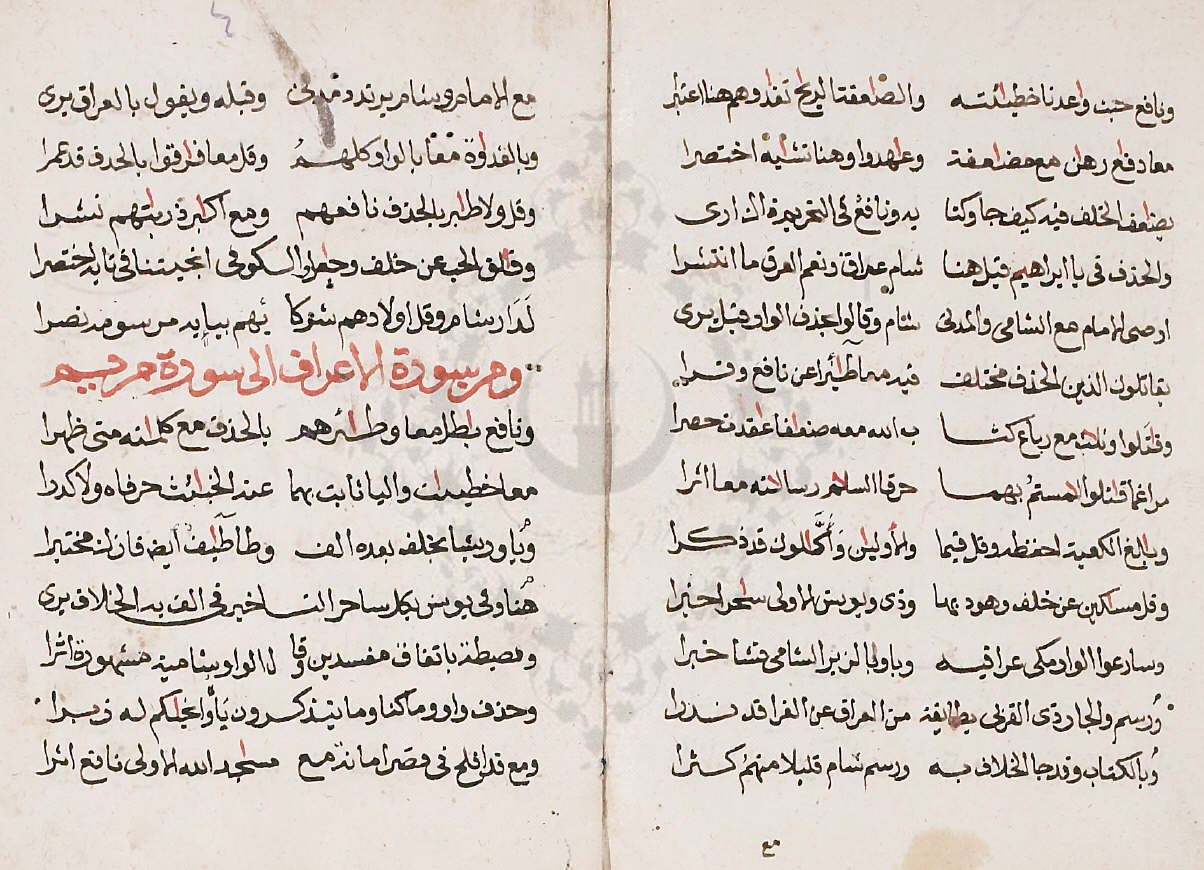 ونافع حيث واعدنا خطيئته والصاعقة الريح تفدوهم هنا اعتبرا
معا دفاع رهان مع مضاعفة وعاهدوا وهنا تشابه اختصرا
يضاعف الخلف فيه كيف جا وكتا به ونافع في التحريم ذاك ارى
والحذف في يا ابراهيم قيل هنا شام عراق ونعم العرق ما انتشرا
اوصى الامام مع الشامي والمدني شام وقالوا بحذف الواو قبل يرى
يقاتلون الذين الحذف مختلف فيه معا طائرا عن نافع وقرا
وقاتلوا وثلاث مع رباع كتا ب الله معه ضعافا عاقدت حصرا
مراغما قاتلوا لامستم بهما حرفا السلام رسالاته معا اثرا
وبالغ الكعبة احفظه وقل قيما والاوليان وأكالون قد ذكرا
وقل مساكين عن خلف وهود بها وذي ويونس الاولى ساحر اختبرا
وسارعوا الواو مكي عراقية وبا وبالزبر الشامي فشا خبرا
ورسم والجار ذي القربى بطائفة من العراق عن الفرا قد ندرا
وبالكتاب وقد جا الخلاف به ورسم شام قليلا منهم كثرا
مع
مع الامام وشام يرتدد مدني وقبله ويقول بالعراق يرى
وبالغداة معا بالواو كلهم وقل معا فارقوا بالحذف قد عمرا
وقل ولا طائر بالحذف نافعهم ومع اكابر ذرياتهم نشرا
وفالق الحب عن خلف وجاعل والكوفي انجيتنا في تايه اختصرا
لدار شام وقل اولادهم شركا يهم بيايه مرسومه نصرا
ومن سورة الاعراف الى سورة مريم
ونافع باطل معا وطائرهم بالحذف مع كلماته متى ظهرا
معا خطيئات واليا ثابت بهما عنه الخبائث حرفاه ولا كدرا
ويا وريشا بخلف بعده الف وطا طائف ايضا فازك مختبرا
هنا وفي يونس بكل ساحر التا خير في الف به الخلاف يرى
وبصطة باتفاق مفسدين وقا ل الواو شامية مشهورة اثرا
وحذف واو وما كنا وما يتذكرون يا وانجاكم له زبرا
ومع قد افلح في قصر امانة مع مساجد الله الاولى نافع اثرا